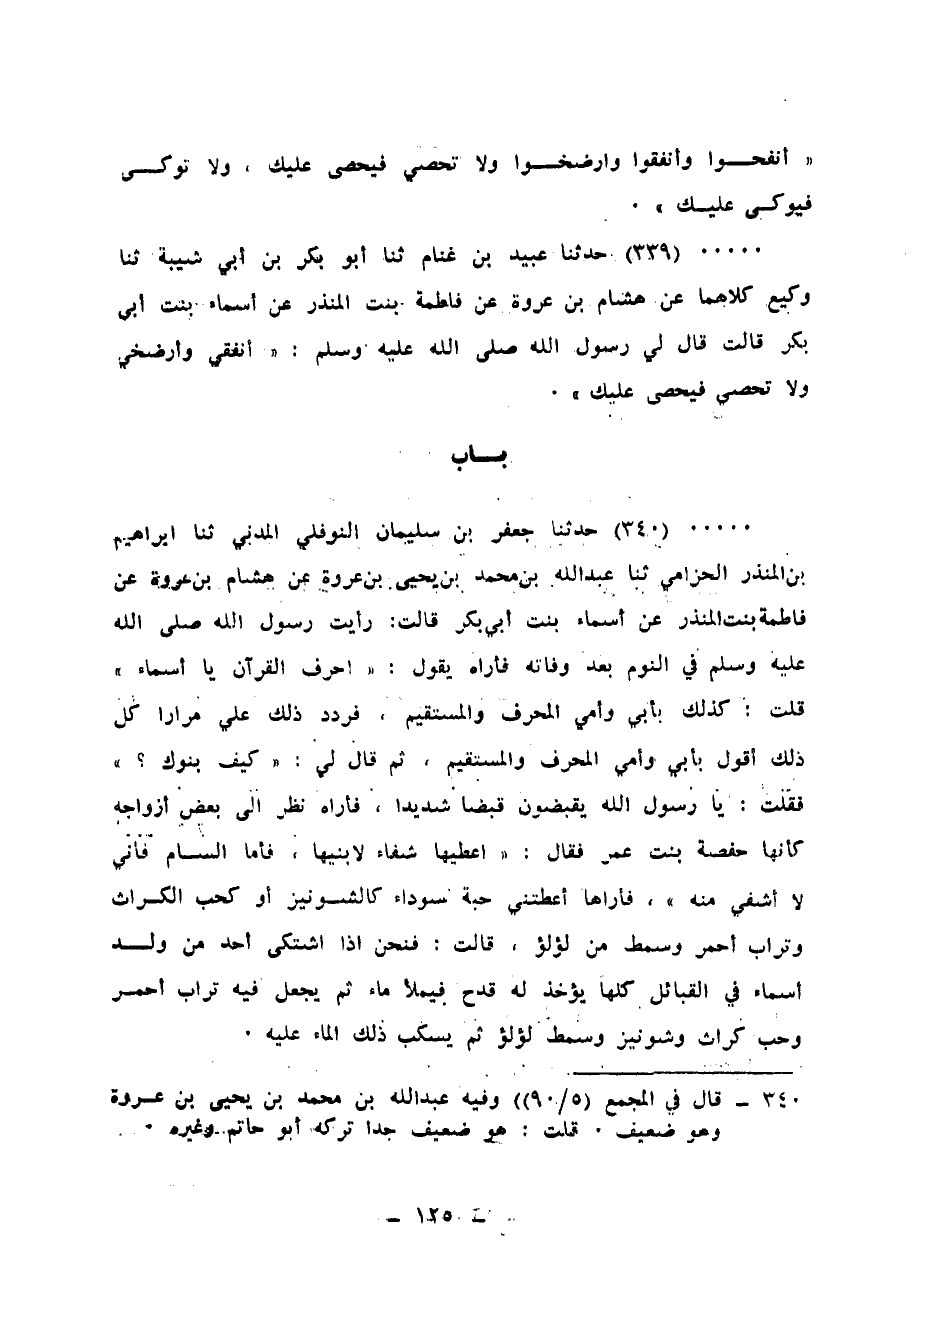 « أنفحوا وأنفقوا وارضخوا ولا تحصي فيحصى عليك ، ولا توكي
فيوكى عليك » ٠
٠٠٠٠٠ (٣٣٩) حدثنا عبيد بن غنام ثنا أبو بكر بن أبي شيبة ثنا
وكيع كلاهما عن هشام بن عروة عن فاطمة بنت المنذر عن أسماء بنت أبي
بكر قالت قال لي رسول الله صلى الله عليه وسلم : « أنفقي وأرضخي
ولا تحصي فيحصى عليك » ٠
باب
٠٠٠٠٠ (٣٤٠) حدثنا جعفر بن سليمان النوفلي المدني ثنا ابراهيم
بن المنذر الحزامي ثنا عبدالله بن محمد بن يحيى بن عروة عن هشام بن عروة عن
فاطمة بنت المنذر عن أسماء بنت أبي بكر قالت: رأيت رسول الله صلى الله
عليه وسلم في النوم بعد وفاته فأراه يقول : « احرف القرآن يا أسماء »
قلت : كذلك بأبي وأمي المحرف والمستقيم ، فردد ذلك علي مرارا كل
ذلك أقول بأبي وأمي المحرف والمستقيم ، ثم قال لي : « كيف بنوك ؟ »
فقلت : يا رسول الله يقبضون قبضا شديدا ، فأراه نظر الى بعض أزواجه
كأنها حفصة بنت عمر فقال : « اعطيها شفاء لابنيها ، فأما السام فأني
لا أشفي منه » ، فأراها أعطتني حبة سوداء كالشونيز أو كحب الكراث
وتراب أحمر وسمط من لؤلؤ ، قالت : فنحن اذا اشتكى أحد من ولد
أسماء في القبائل كلها يؤخذ له قدح فيملأ ماء ثم يجعل فيه تراب أحمر
وحب كراث وشونيز وسمط لؤلؤ ثم يسكب ذلك الماء عليه ٠
٣٤٠ ــ قال في المجمع (٩٠/٥)) وفيه عبدالله بن محمد بن يحيى بن عروة
وهو ضعيف ٠ قلت : هو ضعيف جدا تركه أبو حاتم وغيره ٠
ــ ١٢٥ ــ